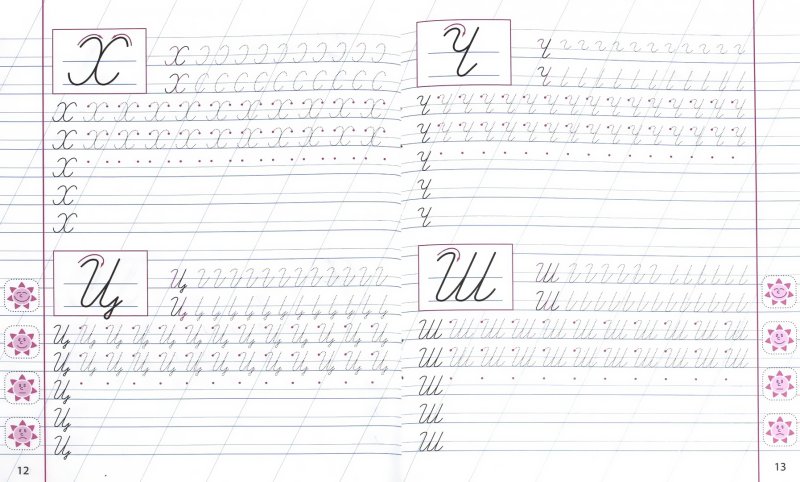 Х
Х
Х
Х Х Х Х Х Х Х Х Х Х Х
Х Х Х Х Х Х Х Х Х Х Х
Х
Х
Х
Ц
Ц
Ц
Ц Ц Ц Ц Ц Ц Ц Ц Ц Ц Ц Ц Ц
Ц Ц Ц Ц Ц Ц Ц Ц Ц Ц Ц Ц Ц
Ц
Ц
Ц
12
Ч
Ч
Ч
Ч Ч Ч Ч Ч Ч Ч Ч Ч Ч Ч Ч Ч Ч Ч Ч
Ч Ч Ч Ч Ч Ч Ч Ч Ч Ч Ч Ч Ч Ч Ч Ч
Ч
Ч
Ч
Ш
Ш
Ш
Ш Ш Ш Ш Ш Ш Ш Ш Ш Ш Ш
Ш Ш Ш Ш Ш Ш Ш Ш Ш Ш Ш
Ш
Ш
Ш
13